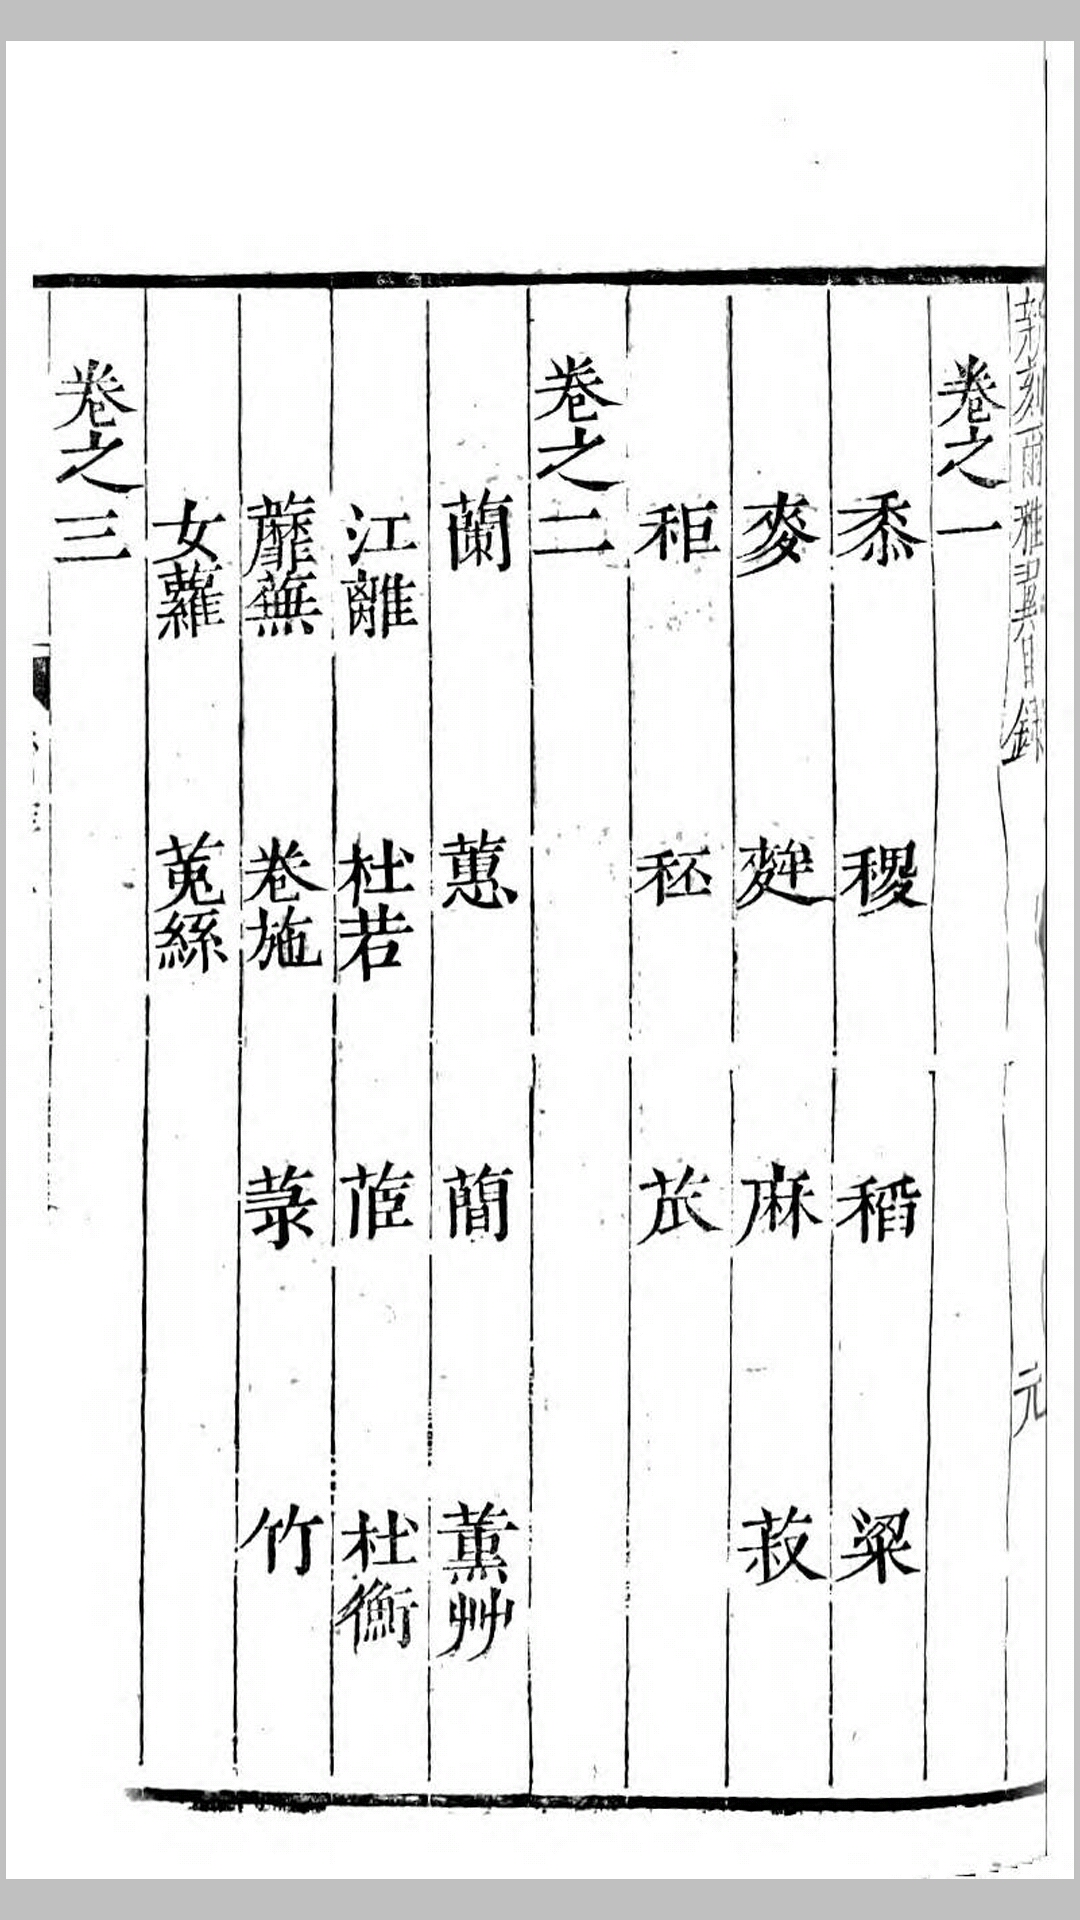 新刻爾雅翼目錄 元
卷之一
黍 稷 稻 粱
麥 麰 麻 菽
秬 秠 苽
卷之二
蘭 蕙 蕑 薰艸
江離 杜若 茝 杜衡
蘼蕪 卷施 菉 竹
女蘿 菟絲
卷之三